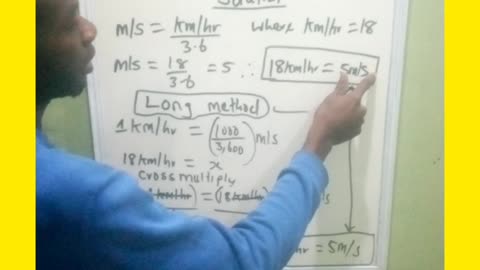 Solution
m/s = km/hr / 3.6 where km/hr = 18
m/s = 18 / 3.6 = 5 ∴ 18km/hr = 5m/s
Long method
1km/hr = (1000 / 3,600) m/s
18km/hr = x
cross multiply
1km/hr = (18km/hr
hr = 5m/s